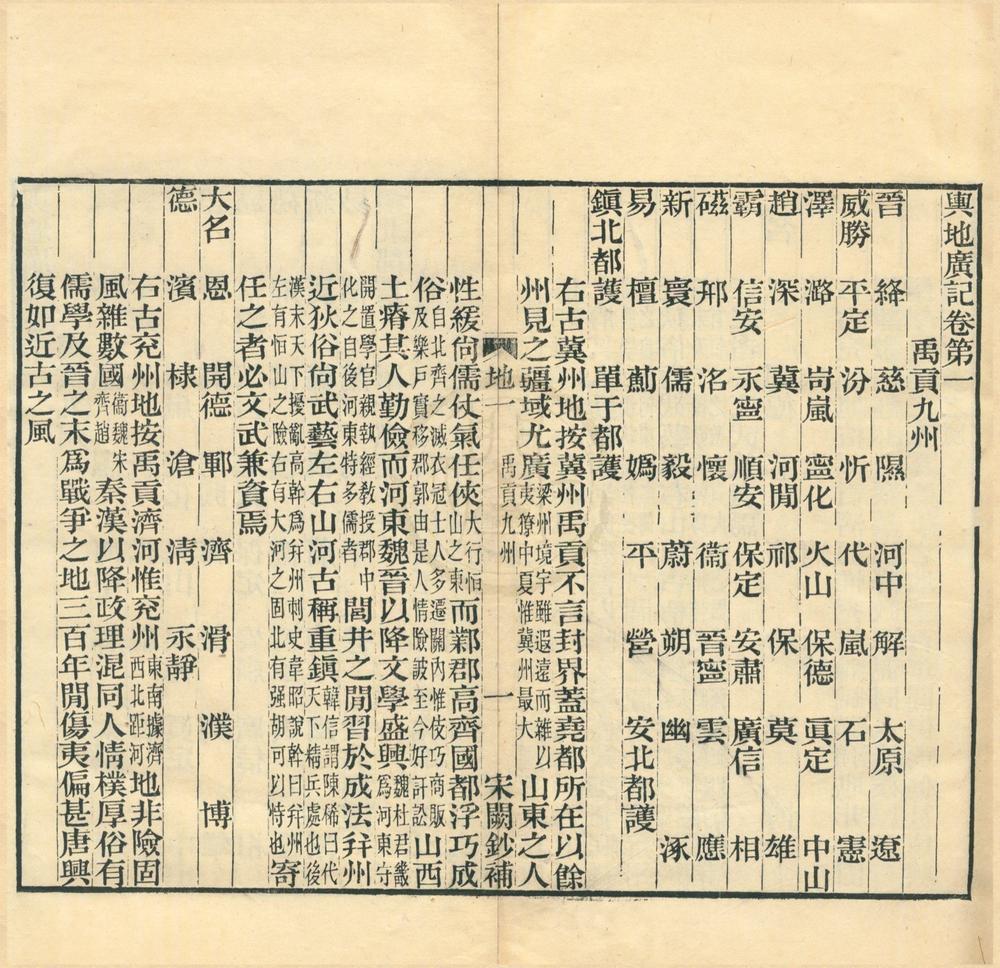 輿地廣記卷第一
禹貢九州
晉 絳 慈 隰 河中 解 太原 遼
威勝 平定 汾 忻 代 嵐 石 憲
澤 潞 岢嵐 寧化 火山 保德 眞定 中山
趙 深 冀 河閒 祁 保 莫 雄
霸 信安 永寧 順安 保定 安肅 廣信 相
磁 邢 洺 懷 衞 晉寧 雲 應
新 寰 儒 毅 蔚 朔 幽 涿
易 檀 薊 嬀 平 營 安北都護
鎭北都護 單于都護
右古冀州地按冀州禹貢不言封界蓋堯都所在以餘
州見之疆域尤廣夷獠中夏惟冀州最大梁州境宇雖遐遠而雜以山東之人
地一 禹貢九州 一 宋闕鈔補
性緩尙儒仗氣任俠大行恒山之東而鄴郡高齊國都浮巧成
俗自北齊之滅衣冠士人多遷關內惟伎巧商販及樂戶實移郡郭由是人情險詖至今好訐訟山西
土瘠其人勤儉而河東魏晉以降文學盛興魏杜君畿爲河東守
開置學官親執經敎授郡中化之自後河東特多儒者閭井之閒習於成法幷州
近狄俗尙武藝左右山河古稱重鎭韓信謂陳稀曰代天下精兵處也後
漢末天下擾亂高幹爲幷州刺史韋昭說幹曰幷州左有恒山之險右有大河之固北有强胡可以恃也寄
任之者必文武兼資焉
大名 恩 開德 鄆 濟 滑 濮 博
德 濱 棣 滄 淸 永靜
右古兖州地按禹貢濟河惟兖州東南據濟西北距河地非險固
風雜數國衞魏宋齊趙秦漢以降政理混同人情樸厚俗有
儒學及晉之末爲戰爭之地三百年閒傷夷偏甚唐興
復如近古之風